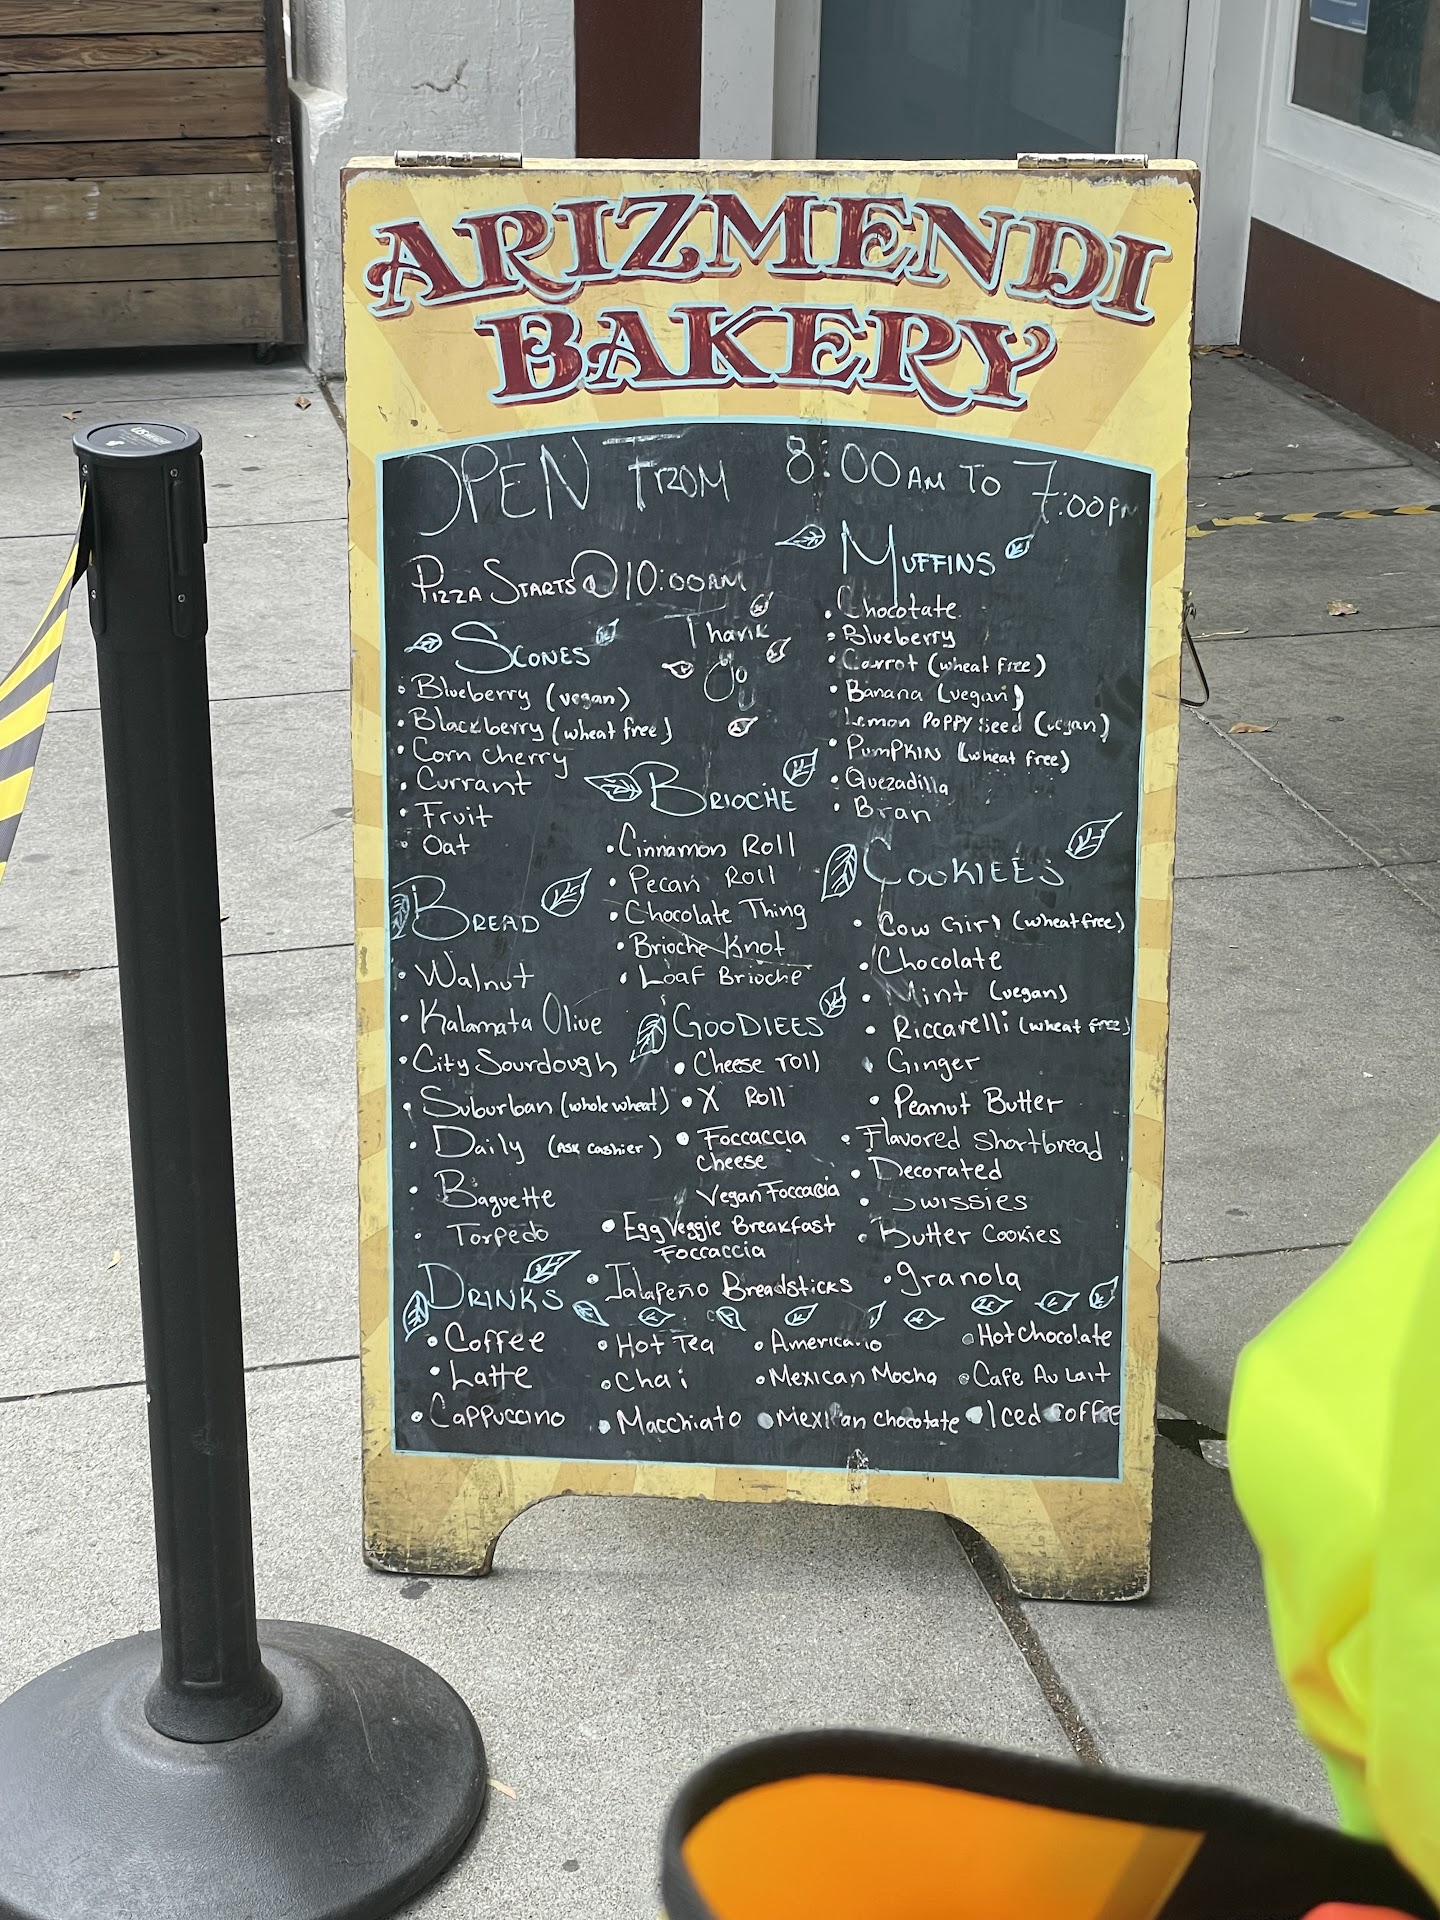 ARIZMENDI
BAKERY
OPEN FROM 8:00AM TO 7:00PM
PIZZA STARTS @ 10:00AM
Thank
yo
SCONES
• Blueberry (vegan)
• Blackberry (wheat free)
• Corn cherry
• Currant
• Fruit
• Oat
MUFFINS
• Chocolate
• Blueberry
• Carrot (wheat free)
• Banana (vegan)
• Lemon Poppy Seed (vegan)
• Pumpkin (wheat free)
• Quezadilla
• Bran
BRIOCHE
• Cinnamon Roll
• Pecan Roll
• Chocolate Thing
• Brioche Knot
• Loaf Brioche
BREAD
• Walnut
• Kalamata Olive
• City Sourdough
• Suburban (whole wheat)
• Daily (ASK cashier)
• Baguette
• Torpedo
GOODIEES
• Cheese roll
• X Roll
• Foccaccia
cheese
Vegan Foccaccia
• Egg Veggie Breakfast
Foccaccia
• Jalapeño Breadsticks
COOKIEES
• Cow Girl (wheat free)
• Chocolate
• Mint (vegan)
• Riccarelli (wheat free)
• Ginger
• Peanut Butter
• Flavored shortbread
• Decorated
• Swissies
• Butter Cookies
• granola
DRINKS
• Coffee
• Latte
• Cappuccino
• Hot Tea
• Chai
• Macchiato
• Americano
• Mexican Mocha
• Mexican chocolate
• Hot chocolate
• Cafe Au Lait
• Iced Coffee